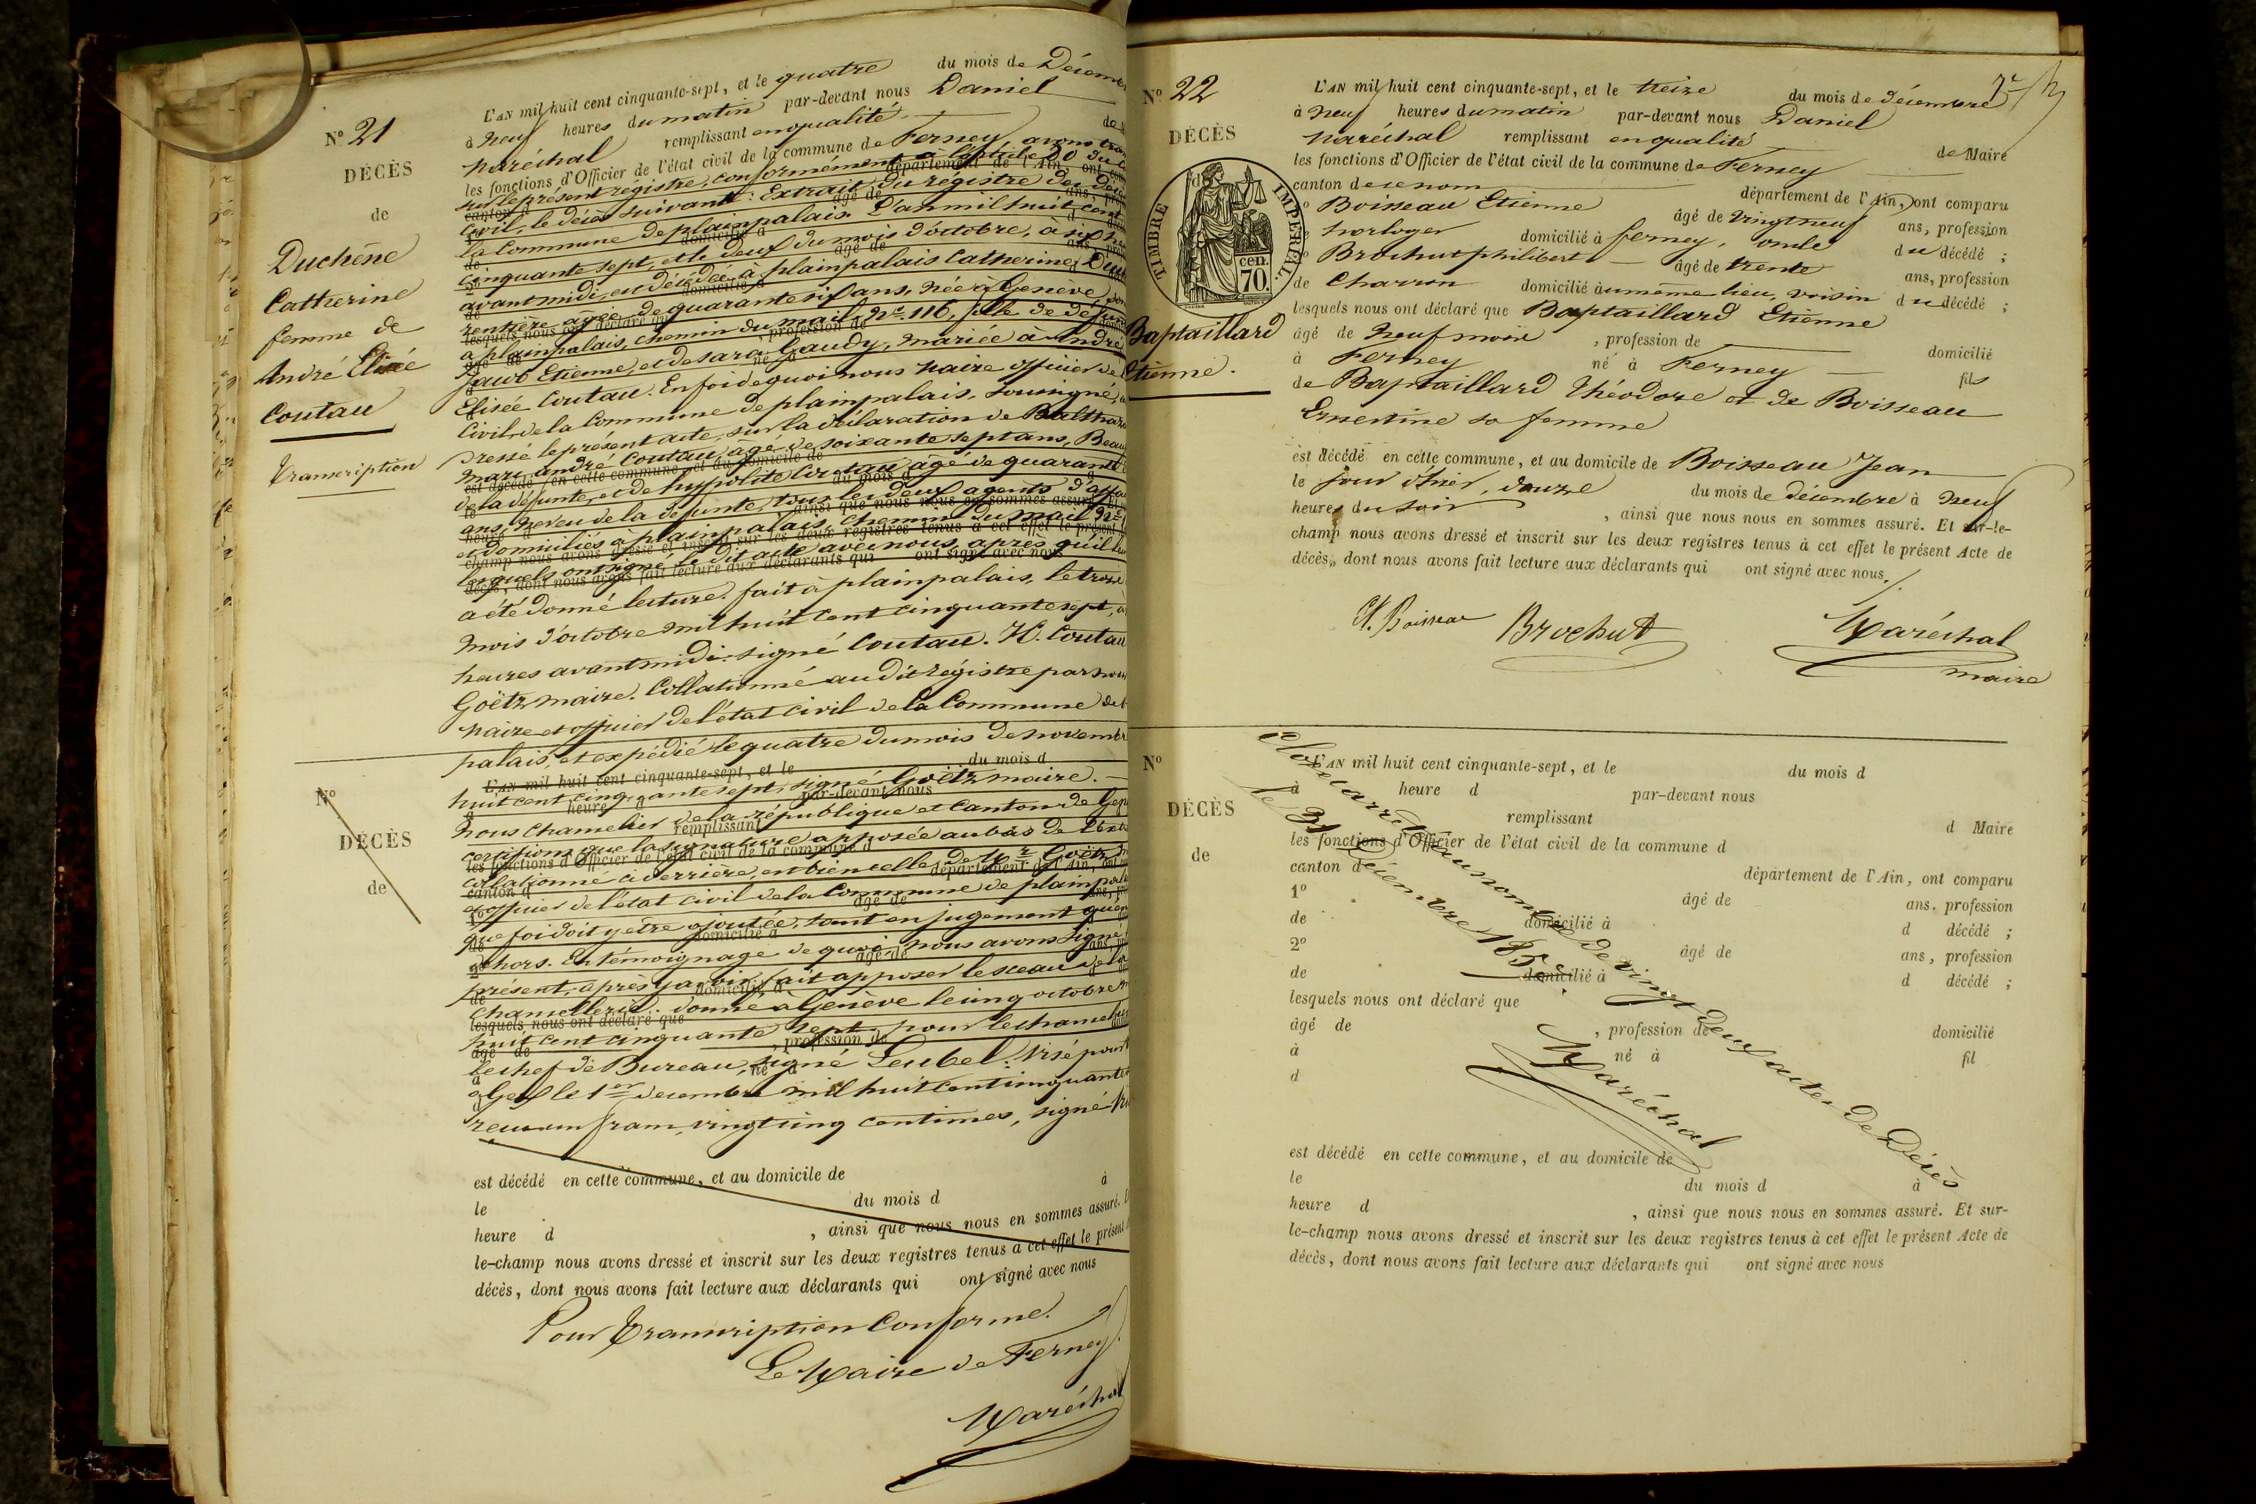 L'AN mil huit cent cinquante-sept, et le quatre du mois de Décem
à neuf heures du matin par-devant nous Daniel
Maréchal remplissant en qualité de
les fonctions d'Officier de l'état civil de la commune de Ferney avons
sur le présent registre, conformément à l'article
civil, le décès suivant: Extrait du registre des
la Commune de plainpalais. L'an mil huit cent
cinquante sept, et le deux du mois d'octobre, à
avant midi, est décédée à plainpalais Catherine
rentière âgée de quarante six ans, née à Genève
à plainpalais, chemin du mail, No 116, fille de
Jacob Etienne, et de sara Gaudy, mariée à André
Elisée Coutau. En foi de quoi nous Maire officier de
Civil, de la Commune de plainpalais, soussigné,
dressé le présent acte, sur la déclaration de Balthazar
marc andré Coutau, âgé de soixante sept ans, Beau
de la défunte, et de hyppolite Coutau âgé de quarante
ans, neveu de la défunte, tous les deux agents d'affai
et domiciliés à plainpalais, chemin du mail No
lesquels ont signé le dit acte avec nous, après qu'il
a été donné lecture. fait à plainpalais, le trois
mois d'octobre mil huit cent cinquante sept, à
heures avant midi. signé Coutau. H. Coutau
Goëtz maire. Collationné au dit registre par nous
Maire et officier de l'état civil de la Commune de
palais, et expédié le quatre du mois de novembre
huit cent cinquante sept, signé Goëtz maire.
Nous chancelier de la république et Canton de
certifions que la signature apposée au bas de
collationné ci derrière, est bien celle de Mr Goëtz
et officier de l'état civil de la Commune de plainpa
que foi doit y être ajoutée, tant en jugement que
dehors. En témoignage de quoi, nous avons signé
présent, après y avoir fait apposer le sceau de la
chancellerie. donné à Genève le cinq octobre
huit cent cinquante sept, pour le chancelier
le chef de Bureau, signé Leubel. Visé pour
à Gex le 1er décembre mil huit cent cinquante
reçu un franc, vingt cinq centimes, signé
est décédé en cette commune, et au domicile de
le du mois d à
heure d , ainsi que nous nous en sommes assuré.
le-champ nous avons dressé et inscrit sur les deux registres tenus à cet effet le présent
décès, dont nous avons fait lecture aux déclarants qui ont signé avec nous
Pour Transcription Conforme.
Le Maire de Ferney.
Maréchal
No 21
DÉCÈS
de
Duchêne
Catherine
femme de
André Elisée
Coutau
Transcription
No
DÉCÈS
de
No 22
DÉCÈS
TIMBRE IMPERIAL.
70. cen.
Baptaillard
Etienne.
L'AN mil huit cent cinquante-sept, et le treize du mois de décembre
à neuf heures du matin par-devant nous Daniel
Maréchal remplissant en qualité de Maire
les fonctions d'Officier de l'état civil de la commune de Ferney
canton de ce nom département de l'Ain, ont comparu
Boisseau Etienne âgé de vingt neuf ans, profession
horloger domicilié à ferney, oncle du décédé ;
Brochut philibert âgé de trente ans, profession
de Charron domicilié au même lieu, voisin du décédé ;
lesquels nous ont déclaré que Baptaillard Etienne
âgé de neuf mois , profession de domicilié
à Ferney né à Ferney fils
de Baptaillard Théodore et de Boisseau
Ernestine sa femme
est décédé en cette commune, et au domicile de Boisseau Jean
le jour d'hier, douze du mois de décembre à neuf
heures du soir , ainsi que nous nous en sommes assuré. Et sur-le-
champ nous avons dressé et inscrit sur les deux registres tenus à cet effet le présent Acte de
décès, dont nous avons fait lecture aux déclarants qui ont signé avec nous.
Et. Boisseau Brochut Maréchal
maire
No
DÉCÈS
de
L'AN mil huit cent cinquante-sept, et le du mois d
à heure d par-devant nous
remplissant d Maire
les fonctions d'Officier de l'état civil de la commune d
canton d département de l'Ain, ont comparu
1o âgé de ans, profession
de domicilié à d décédé ;
2o âgé de ans, profession
de domicilié à d décédé ;
lesquels nous ont déclaré que
âgé de , profession de domicilié
à né à fil
d
est décédé en cette commune, et au domicile de
le du mois d à
heure d , ainsi que nous nous en sommes assuré. Et sur-
le-champ nous avons dressé et inscrit sur les deux registres tenus à cet effet le présent Acte de
décès, dont nous avons fait lecture aux déclarants qui ont signé avec nous
Clos et arrêté au nombre de vingt deux actes de Décès
le 31 Décembre 1857.
Maréchal